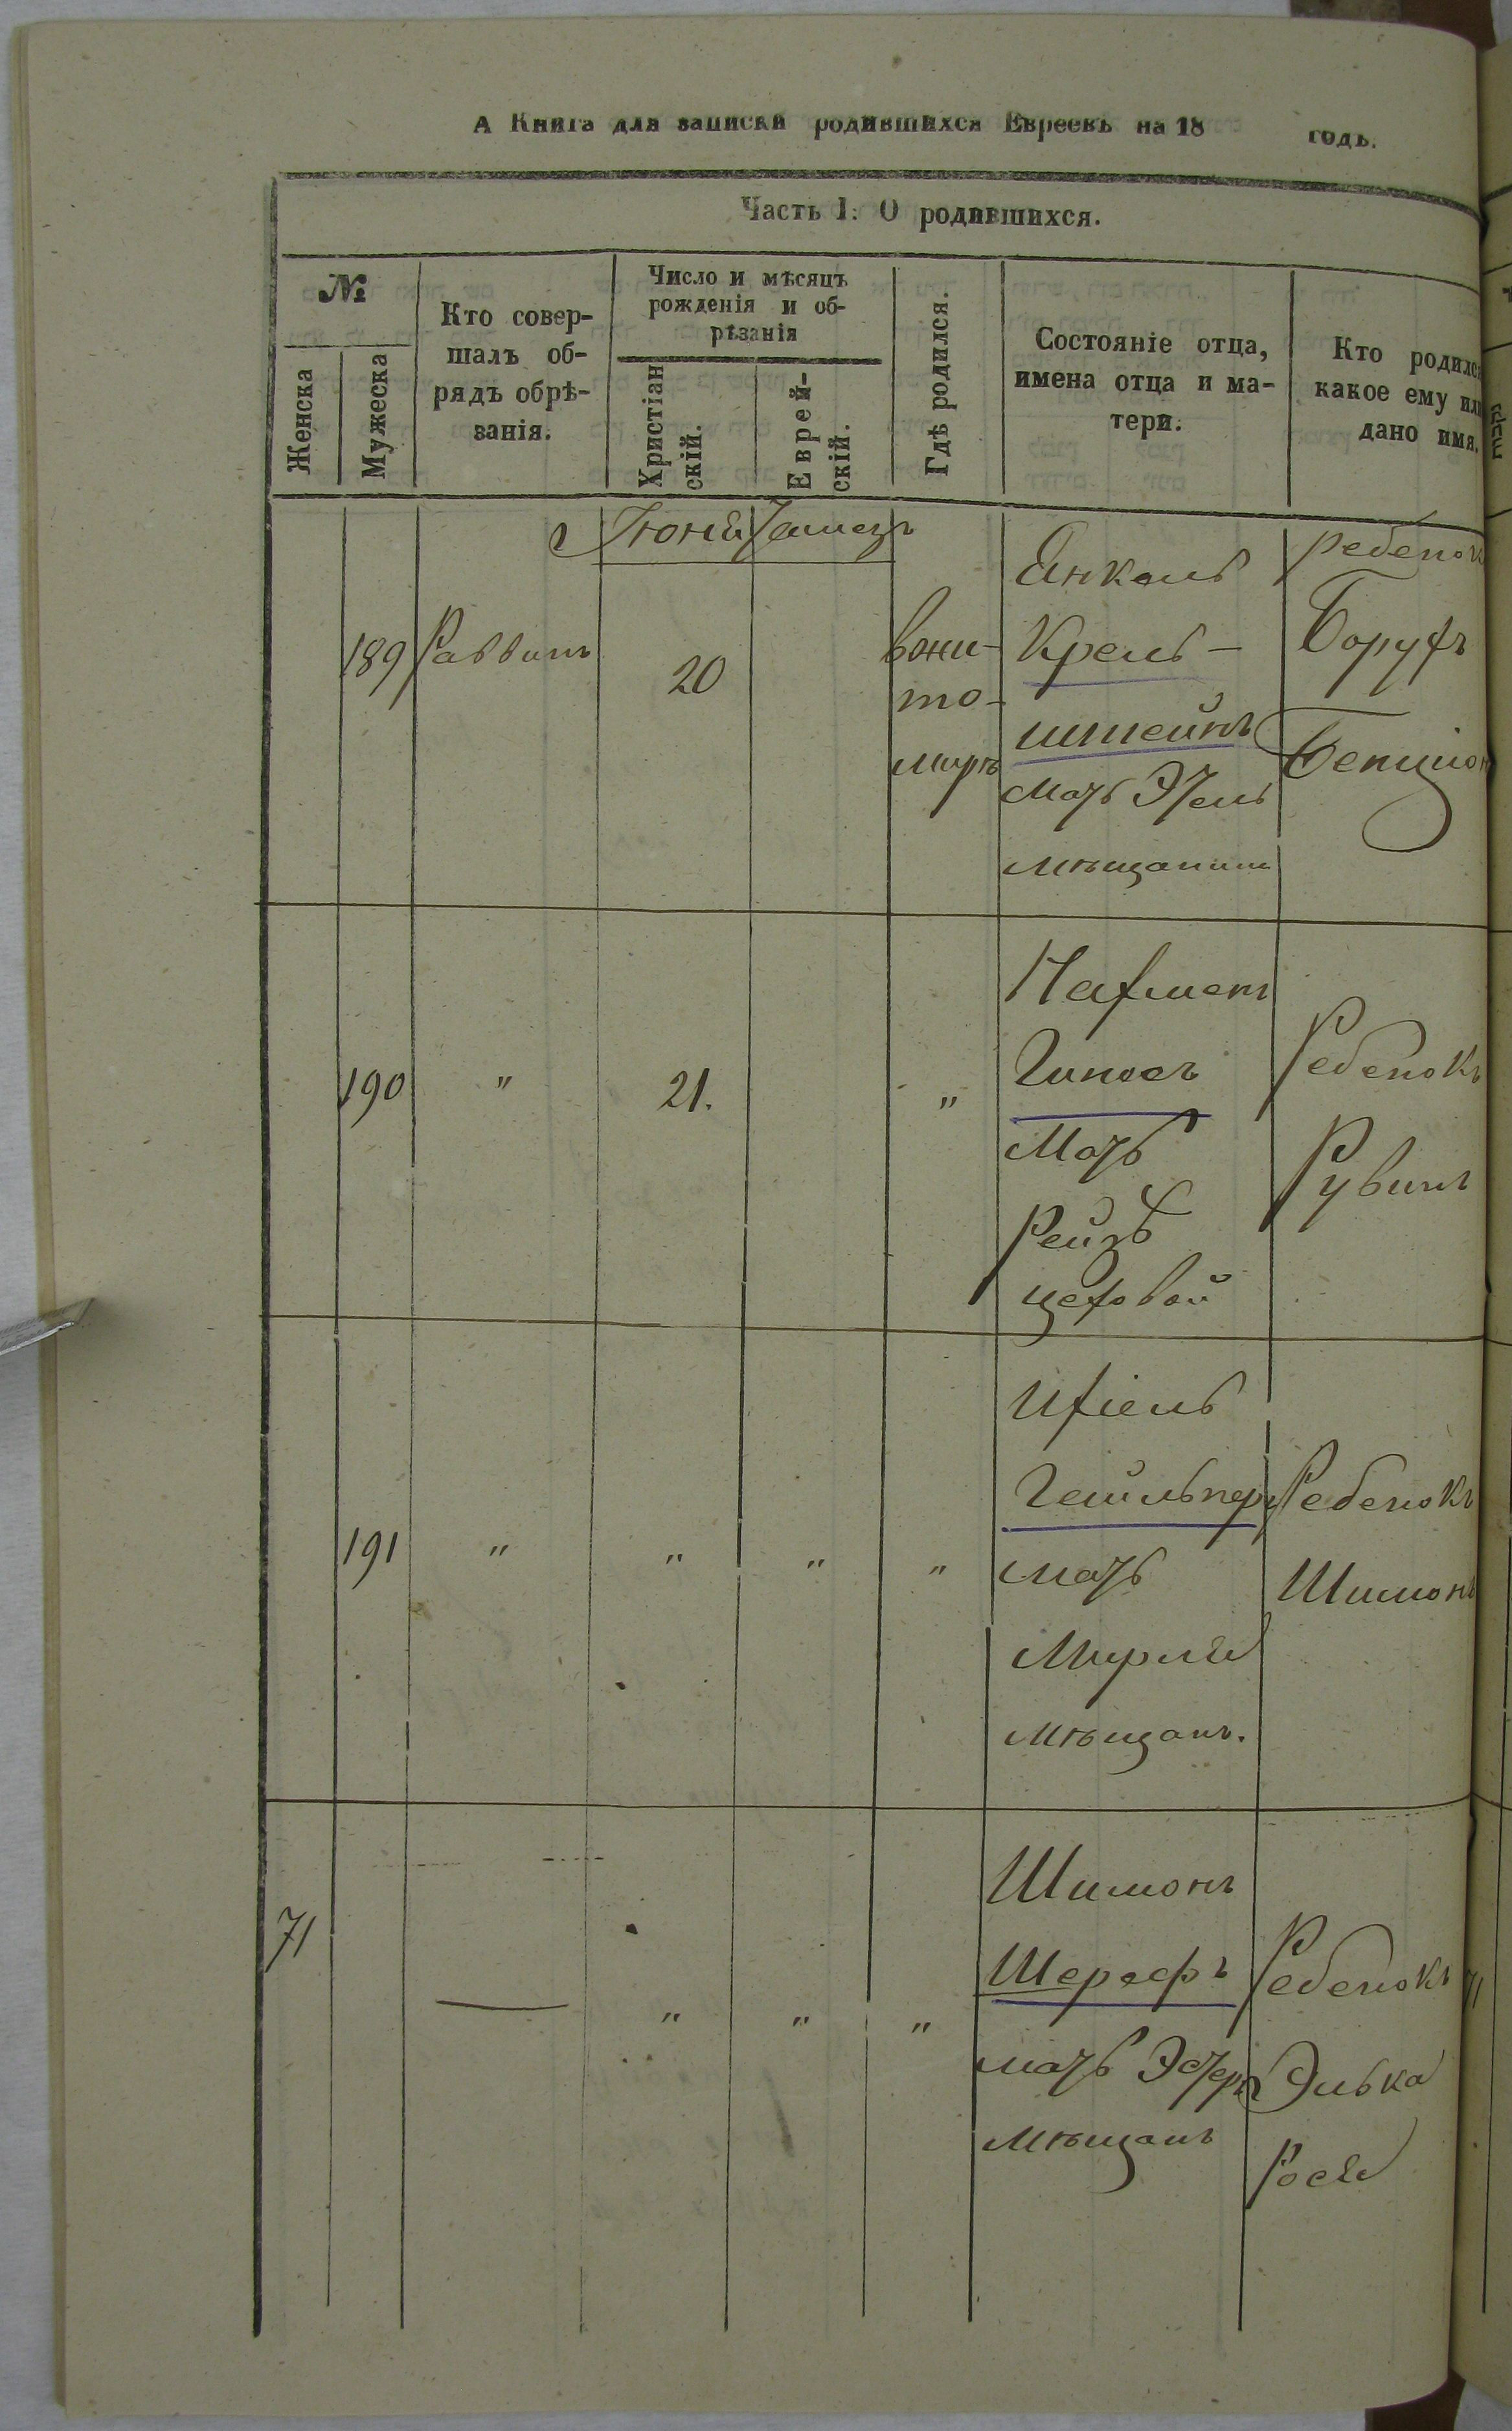 А Книга для записки родившихся Евреевъ на 18 годъ.
Часть I: О родившихся.
№
Женска
Мужеска
Кто совер-
шалъ об-
рядъ обрѣ-
занія.
Число и мѣсяцъ
рожденія и об-
рѣзанія
Христіан
скій.
Еврей-
скій.
Гдѣ родился.
Состояніе отца,
имена отца и ма-
тери.
Кто родился
какое ему или
дано имя.
Іюня Тамезъ
189
Раввинъ
20
вжи-
то-
миръ
Янкель
Крель-
штейнъ
мать Этель
мѣщанинъ
ребенок
Борухъ
Бенціон
190
"
21.
"
Нахманъ
Мать
Рейзя
цеховой
Ребенокъ
Рувинъ
191
"
"
"
"
Ихіель
мать
Мирля
мѣщанъ.
Ребенокъ
Шимонъ
71
—
"
"
"
Шимонъ
Шерефъ
мать Эстеръ
мѣщанъ
Ребенокъ
Элька
Рося
71